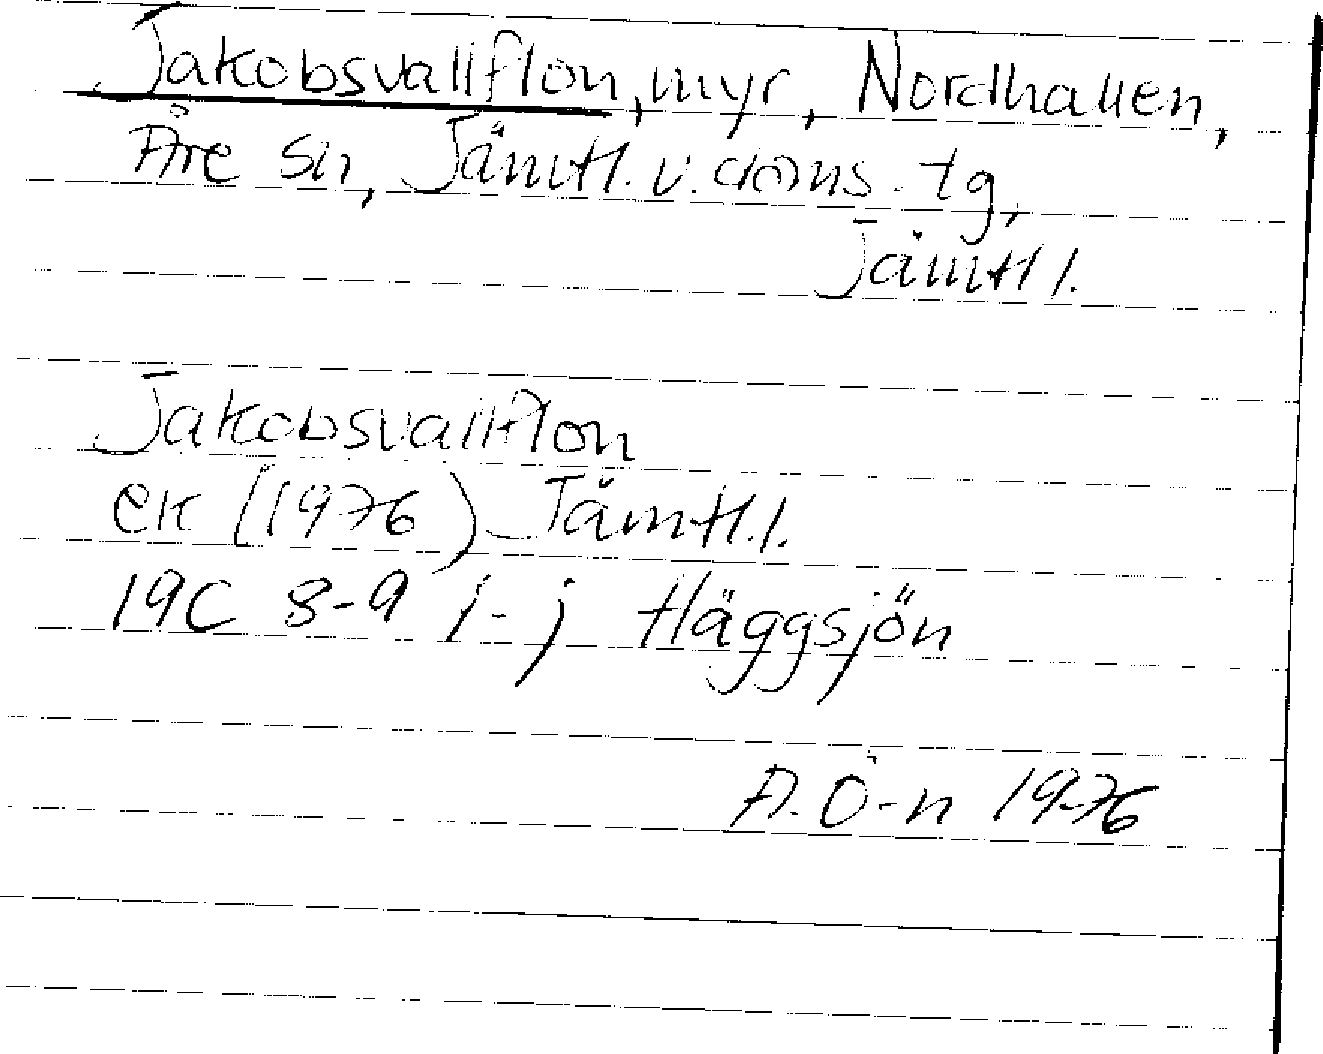 Jakobsvallflon, myr, Nordhallen,
Åre sn, Jämtl. v. doms. tg,
Jämtl l.
Jakobsvallflon
ek (1976) Jämtl.l.
19C 8-9 i-j Häggsjön
A. Ö-n 1976